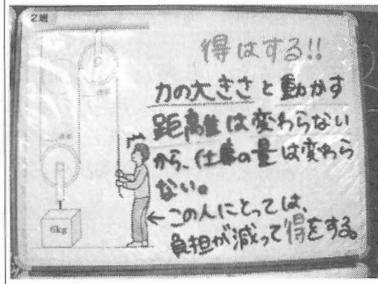 2班
得はする!!
力の大きさと動かす
距離は変わらない
から、仕事の量は変わら
ない。
←この人にとっては、
負担が減って得をする。
6kg